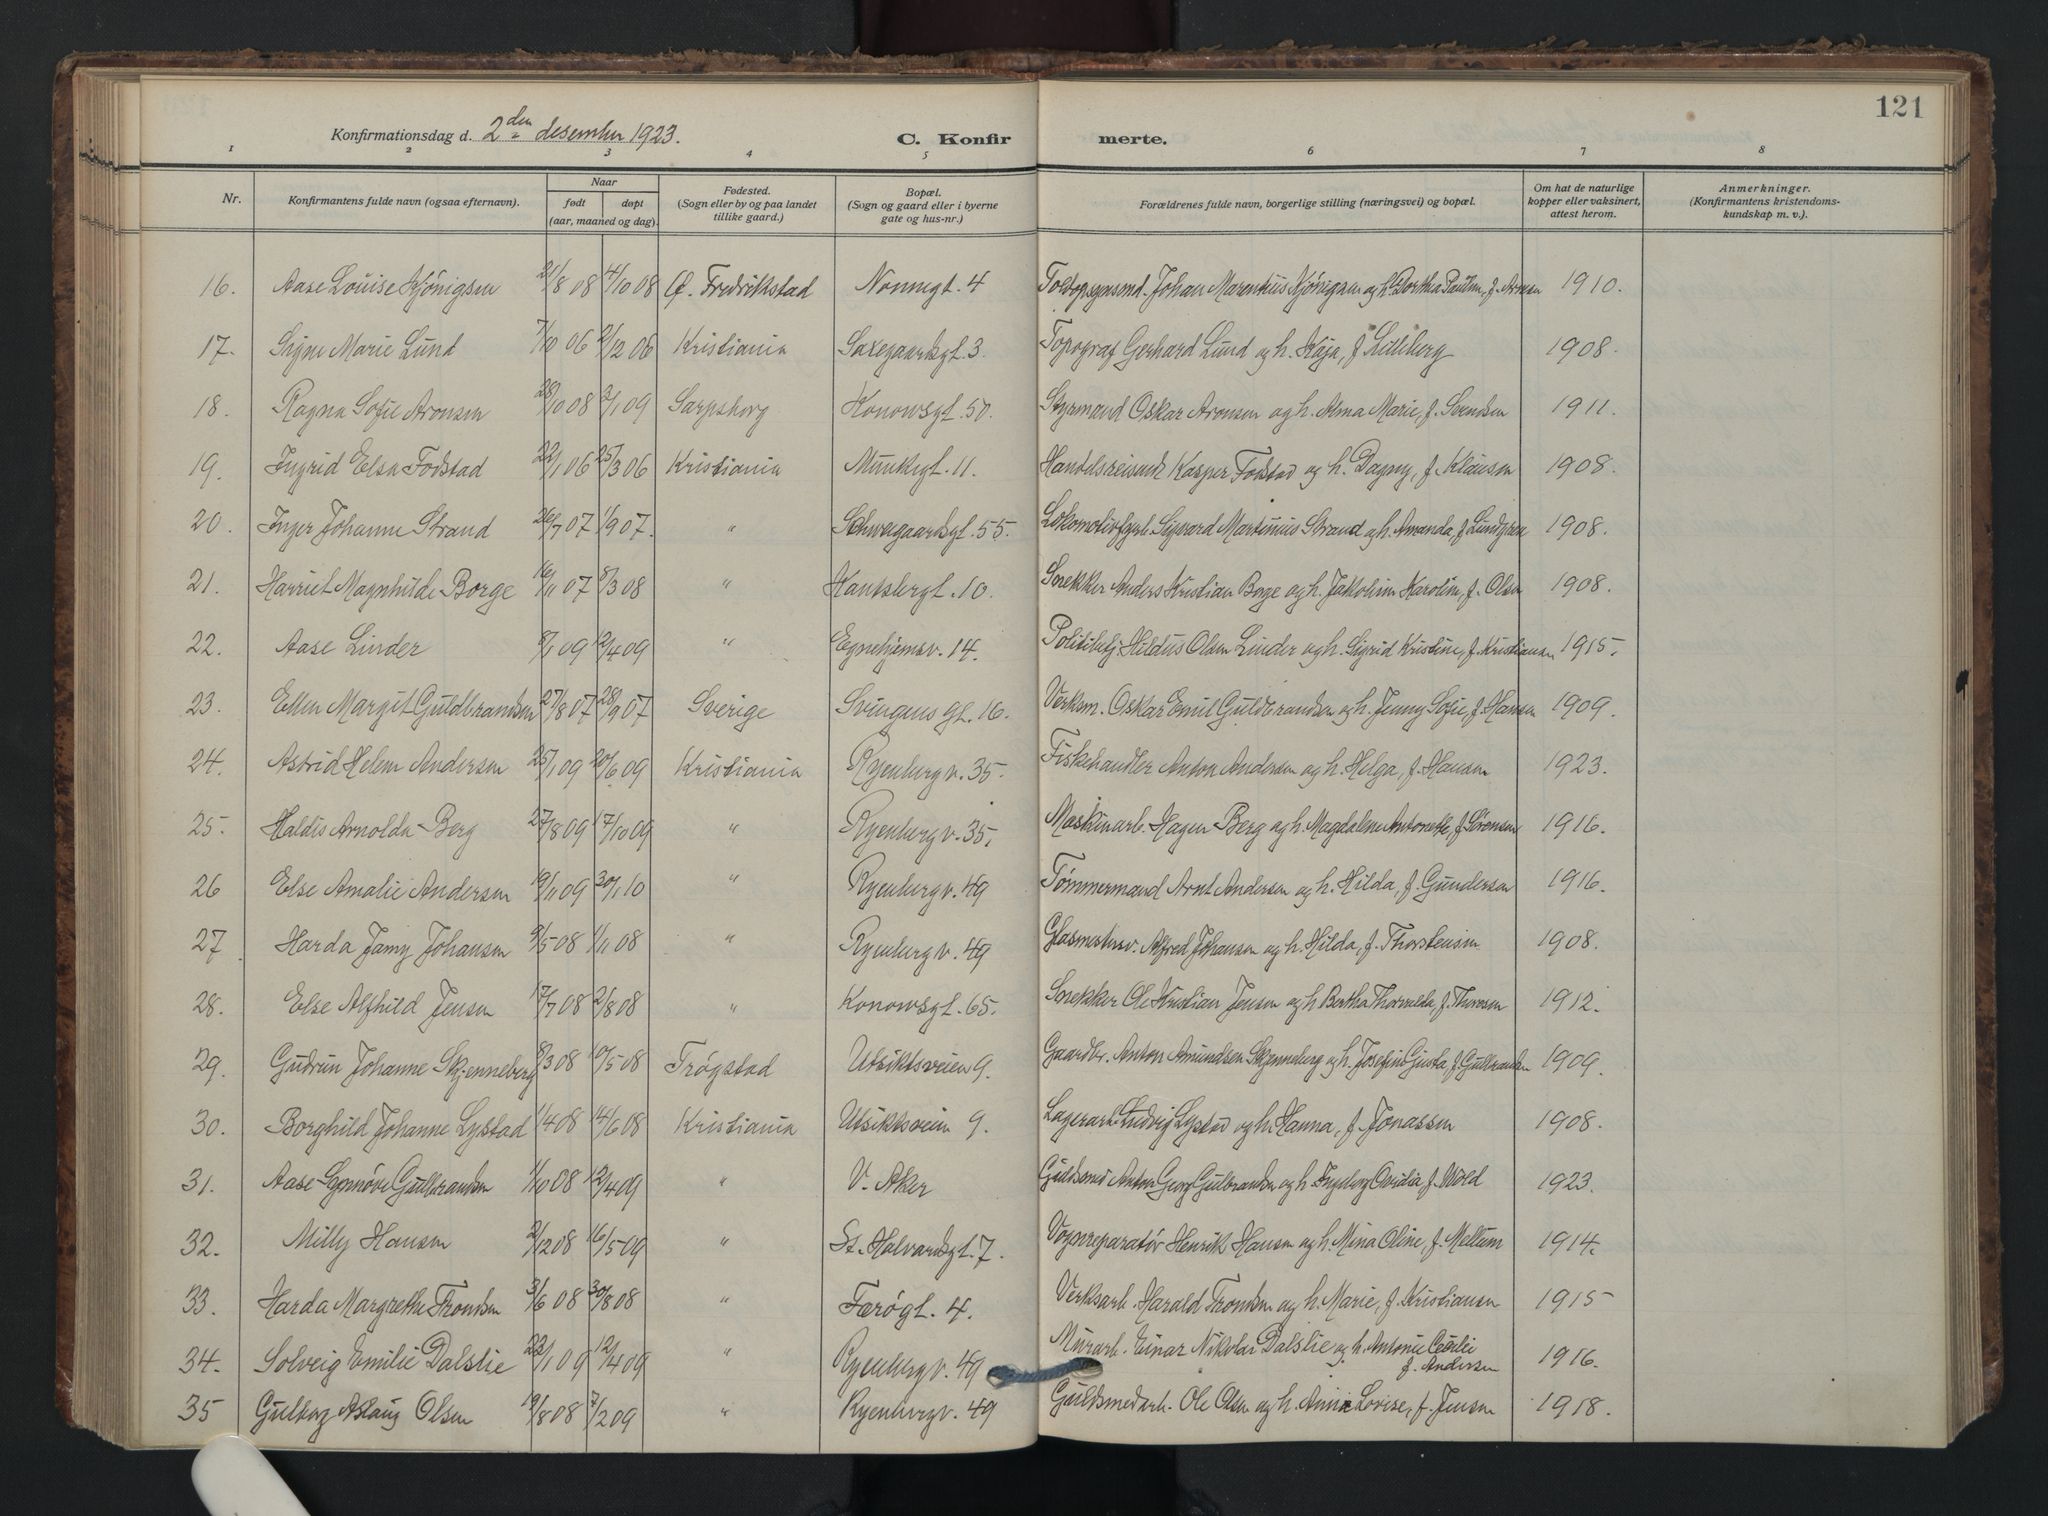 121
Konfirmationsdag d. 2den desember 1923. C. Konfirmerte.
1 2 3 4 5 6 7 8
Nr. Konfirmantens fulde navn (ogsaa efternavn). Naar født døpt (aar, maaned og dag). Fødested. (Sogn eller by og paa landet tillike gaard.) Bopæl. (Sogn og gaard eller i byerne gate og hus-nr.) Forældrenes fulde navn, borgerlige stilling (næringsvei) og bopæl. Om hat de naturlige kopper eller vaksinert, attest herom. Anmerkninger. (Konfirmantens kristendoms-kundskap m. v.).
16. Aase Louise Kjönigsen 21/8 08 4/10 08 Fredrikstad Nonnegt. 4 Johan Marentius Kjönigsen og h. Dorthea Pauline, f. Aronsen 1910.
17. Signe Marie Lund 7/10 06 2/12 06 Kristiania Saxegaardsgt. 3. Topograf Gerhard Lund og h. Kaja, f. Lilleberg 1908.
18. Ragna Sofie Aronsen 28/10 08 2/1 09 Sarpsborg Konowsgt. 50. Styrmand Oskar Aronsen og h. Alma Marie, f. Svendsen 1911.
19. Ingrid Elsa Fodstad 22/1 06 25/3 06 Kristiania Munkegt. 11. Handelsreisende Kasper Fodstad og h. Dagny, f. Klausen 1908.
20. Inger Johanne Strand 26/7 07 1/9 07. " Schweigaardsgt. 55. Lokomotivfyrb. Sigvard Martinius Strand og h. Amanda, f. Lundgren 1908.
21. Harriet Magnhilde Borge 16/11 07 8/3 08 " Kantsbergt. 10. Snekker Anders Kristian Borge og h. Jakobine Karoline, f. Olsen 1908.
22. Aase Linder 8/1 09 12/4 09 " Egnehjemsv. 14. Politibetj. Hildus Olsen Linder og h. Sigrid Kristine, f. Kristiansen 1915.
23. Ellen Margit Guldbrandsen 27/8 07 28/9 07 Sverige Svingens gt. 16. Verksm. Oskar Emil Guldbrandsen og h. Jenny Sofie, f. Hansen 1909.
24. Astrid Helene Andersen 25/1 09 20/6 09 Kristiania Ryenbergv. 35. Fiskehandler Anton Andersen og h. Helga, f. Hansen 1923.
25. Haldis Arnolda Berg 27/8 09 17/10 09 " Ryenbergv. 35. Maskinarb. Hagen Berg og h. Magdalene Antonette, f. Sörensen 1916.
26 Else Amalie Andersen 19/11 09 30/1 10 " Ryenbergv. 49 Tömmermand Arnt Andersen og h. Hilda, f. Gundersen 1916.
27. Harda Jamy Johansen 9/5 08 1/11 08 " Ryenbergv. 49 Glasmestersv. Alfred Johansen og h. Hilda, f. Thorstensen 1908.
28. Else Alfhild Jensen 17/7 08 2/8 08 " Konowsgt. 65. Snekker Ole Kristian Jensen og h. Bertha Thorvalda, f. Thoresen 1912.
29. Gudrun Johanne Skjenneberg 8/3 08 10/5 08 Trøgstad Utsiktsveien 9. Gaardbr. Anton Amundsen Skjenneberg og h. Josefine Gusta, f. Gulbrandsen 1909.
30. Borghild Johanne Lystad 1/4 08 14/6 08 Kristiania Utsiktsveien 9. Lagerarb. Ludvig Lystad og h. Hanna, f. Jonassen 1908.
31. Aase Synnöve Gulbrandsen 1/10 08 12/4 09 " V. Aker Guldsmed Anton Georg Gulbrandsen og h. Ingeborg Ovidia f. Wold 1923.
32. Milly Hansen 2/12 08 16/5 09 " St. Halvardsgt. 7. Vognreparatör Henrik Hansen og h. Mina Oline, f. Mellum 1914.
33. Harda Margrethe Trondsen 3/6 08 30/8 08 " Færögt. 4. Verksarb. Harald Trondsen og h. Marie, f. Kristiansen 1915
34. Solveig Emilie Dalslie 23/1 09 12/4 09 " Ryenbergv. 49 Murarb. Einar Nikolai Dalslie og h. Antonie Cecilie
f. Andersen 1916.
35 Gulborg Aslaug Olsen 19/8 08 7/2 09 " Ryenbergv. 49 Guldsmedarb. Ole Olsen og h. Anna Lovise, f. Jensen 1918.